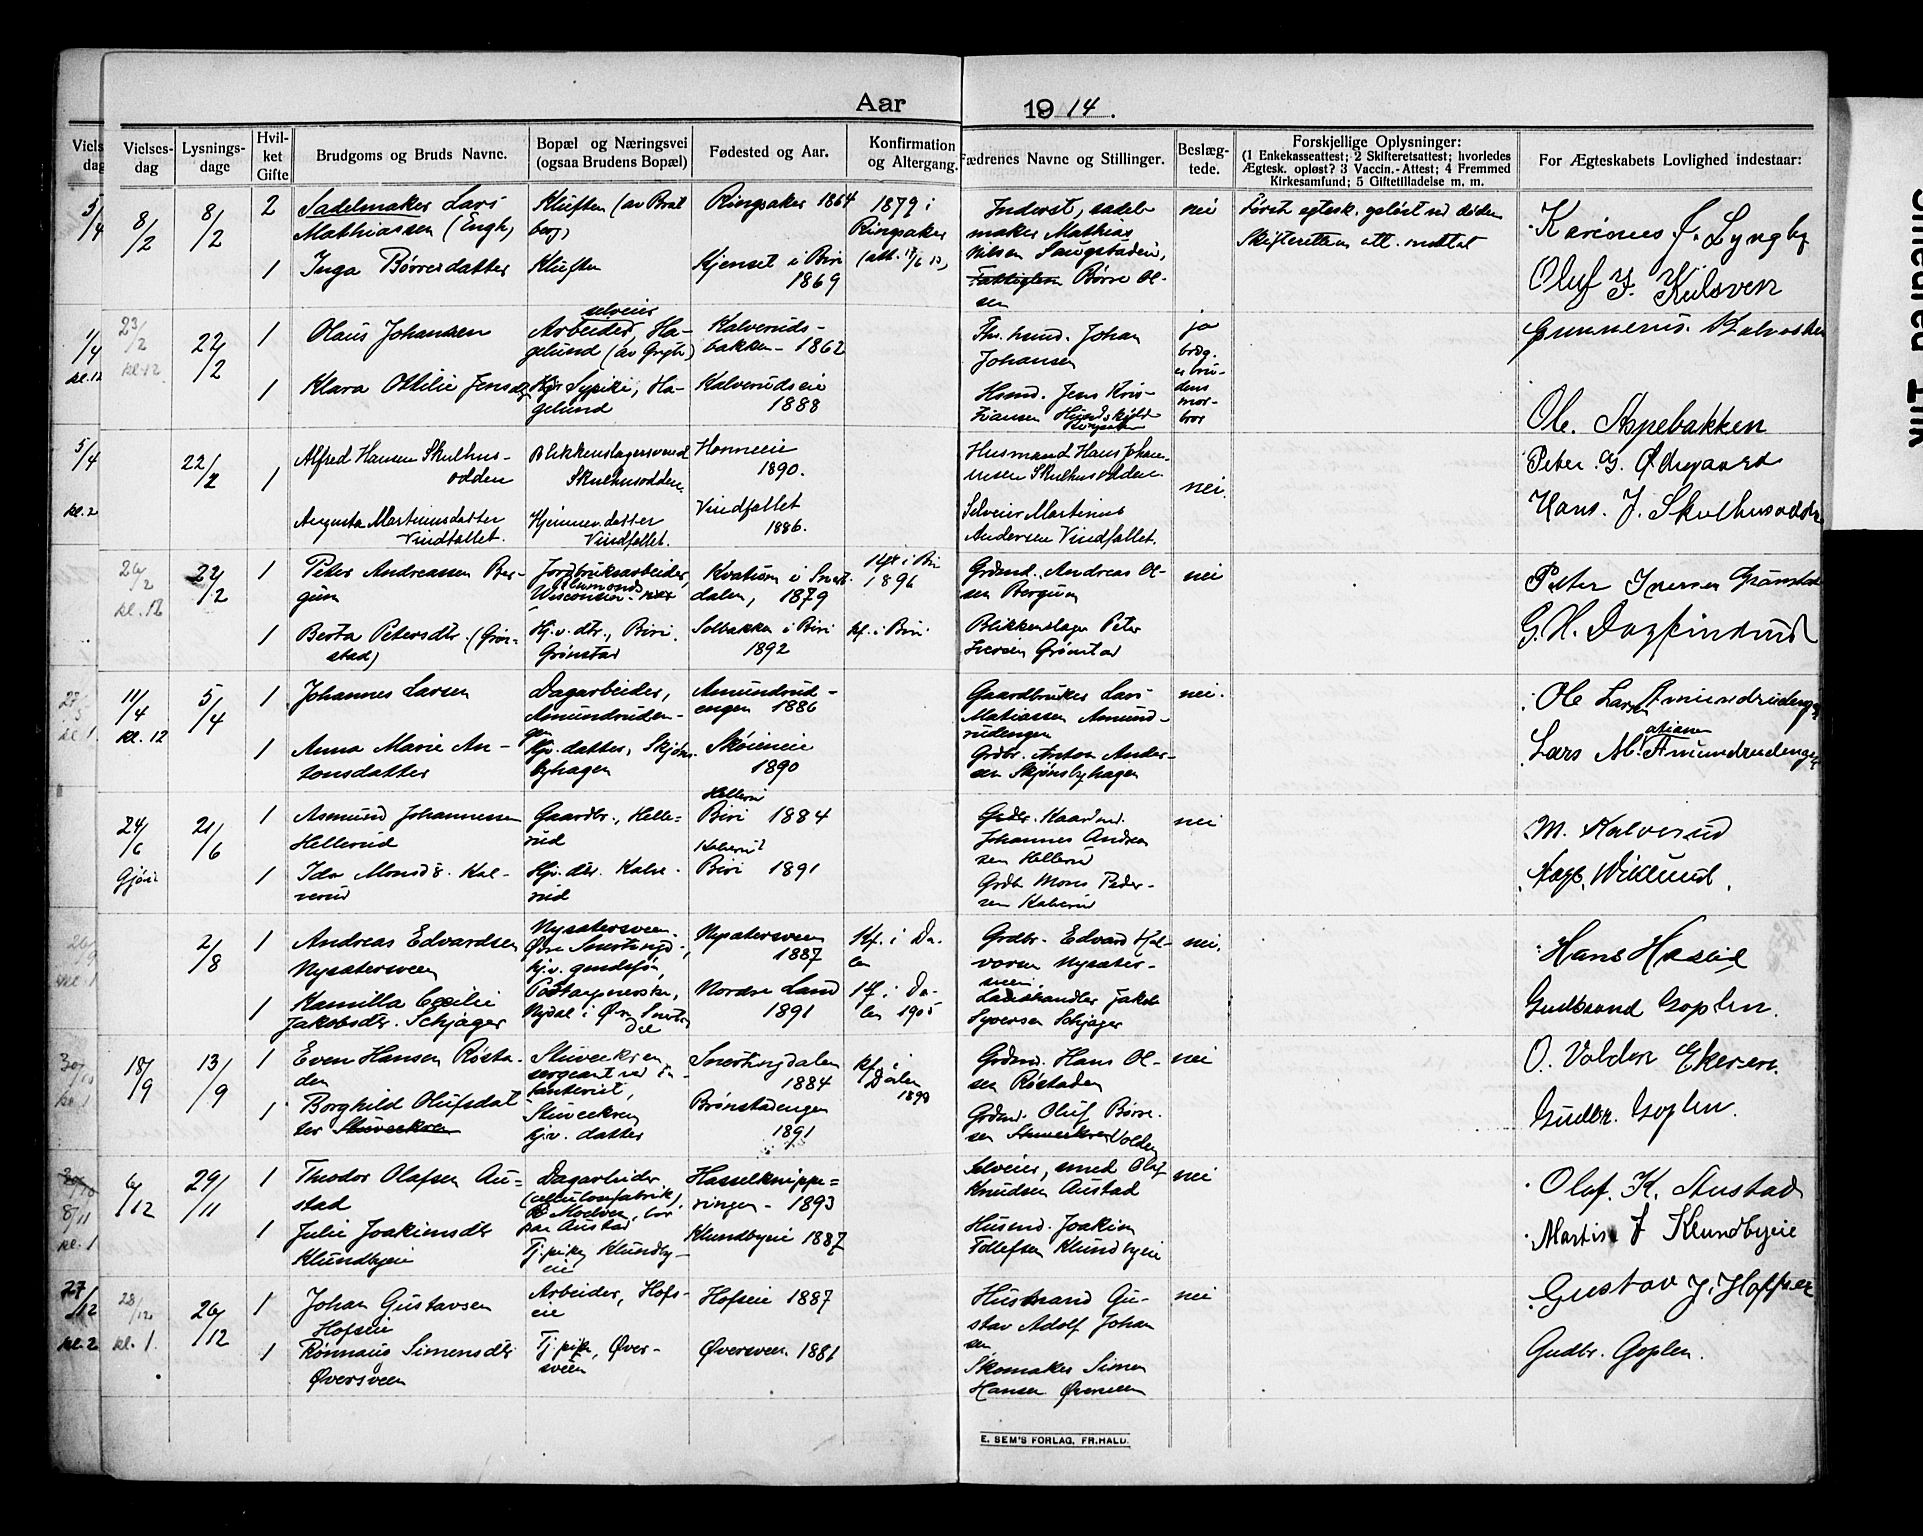 Aar 1914.
Viels dag
Vielses-dag
Lysnings-dage
Hvil-ket Gifte
Brudgoms og Bruds Navne.
Bopæl og Næringsvei (ogsaa Brudens Bopæl)
Fødested og Aar.
Konfirmation og Altergang.
Fædrenes Navne og Stillinger.
Beslæg-tede.
Forskjellige Oplysninger:
(1 Enkekasseattest; 2 Skifteretsattest; hvorledes
Ægtesk. opløst? 3 Vaccin.-Attest; 4 Fremmed
Kirkesamfund; 5 Giftetilladelse m. m.
For Ægteskabets Lovlighed indestaar:
5/4
8/2
8/2
2
Sadelmaker Lars
Mathiassen (Engh)
Kluften (av Brat
berg)
Ringsaker 1864
1879 i
Ringsaker
Inderst, sadel-
maker Mathias
Nilsen
nei
Første egtesk. opløst ved døden
Skifterettens att. mottat
Karinus J. Lyngby
1
Inga Børresdatter
Kluften
Kjenset i Biri
1869
Børre Ol-
sen
Oluf J. Kulsven
1/4
kl. 12
23/2
kl. 12
22/2
1
Olaus Johansen
selveier
Arbeider, Ha-
gelund
Kalveruds-
bakken - 1862
Johan
Johansen
ja
brudg.
er bru-
dens
mor-
bror
Gunnerius
1
Klara Otilie Jensdtr
Sypike, Ha-
gelund
Kalverudseie
1888
Husmd. Jens Kris-
tiansen
Ole. Aspebakken
5/4
kl. 2
22/2
1
Alfred Hansen Skulhus-
odden
Blikkenslagersvend
Skulhusodden.
Honneeie
1890.
Husmand Hans Johan-
nesen Skulhusodden.
nei.
Peter G. Ødegaard
Augusta Martinusdatter
Vindfallet.
Hjemmev. datter
Vindfallet.
Vindfallet
1886.
Selveier Martinus
Andersen Vindfallet.
Hans. J. Skulhusodden
26/2
kl. 12
22/2
1
Peter Andreassen Ber-
gum
Jordbruksarbeider,
Wisconsin
Kvatum i Snert-
dalen, 1879
Kf. i Biri
1896
Grdmd. Andreas Ol-
sen Bergum
nei
Peter Iversen Grønstad
1
Berta Petersdtr. (Grøn-
stad)
Hj.v. dtr., Biri.
Grønstad
Solbakken i Biri
1892
kf. i Biri
Blikkenslager Peter
Iversen Grønstad
G. H. Dagfinrud
11/4
kl. 12
5/4
1
Johannes Larsen
Dagarbeider,
Amundruden-
gen
Amundrud-
engen 1886
Gaardbruker Lars
Matiassen Amund-
rudengen
nei.
Ole Larsen Amundrudengen
1
Anna Marie An-
tonsdatter
Hjv. datter, Skjøns-
byhagen
Skøieneie
1890
Grdbr. Anton Ander-
sen Skjønsbyhagen
Lars Matiassen Amundrudengen
24/6
Gjøvik
21/6
1
Asmund Johannesen
Hellerud
Gaardbr., Helle-
rud
Hellerud
Biri 1884
Johannes Andrea
sen Hellerud
nei
M. Kalverud
1
Ida Monsdtr. Kal-
verud
Hjv. dtr. Kalve-
rud
Kalverud
Biri 1891
Grdbr Mons Peder-
sen Kalverud
Aagb. Willund.
2/8
1
Andreas Edvardsen
Nysætersveen
Nysætersveen.
Øvre Snertingd.,
hj.v. gaardsøn
Nysætersveen
1887
Kf. i Da-
len
Grdbr. Edvard Hal-
vorsen Nysæter-
sveen.
nei.
Hans Haslie
1
Kamilla Cecilie
Jakobsdtr. Schjager
Postaapnerske,
Nydal i Øvre Snertingdal
Nordre Land
1891
Kf. i Da-
len 1905
Landhandler Jakob
Syversen Schjager
Gudbrand Goplen.
18/9
13/9
1
Even Hansen Røsta-
den
Stuveekren
sergeant ved in-
fanteriet,
Snertingdalen
1884
kf. i
Dalen
1899
Grdmd. Hans Ol-
sen Røstaden
nei
O. Volden Ekeren.
1
Borghild Olufsdat-
ter Stuveekren
Stuveekren
hj.v. datter
Brønstadengen
1891
Grdmd. Oluf Børre-
sen Stuveekren Volden
Gudbr. Goplen.
6/12
29/11
1
Theodor Olafsen Au-
stad
Dagarbeider
(cellulosefabrik),
Moelven, bor
paa Austad
Hasselknippe-
ringen - 1893
Selveier, smed Olaf
Knudsen Austad
nei
Olaf. K. Austad
1
Julie Joakimsdtr
Klundbyeie
Tj. pike, Klundby-
eie
Klundbyeie 1887
Husmd. Joakim
Tollefsen Klundbyeie
Martin J Klundbyeie
27/12
kl. 2
28/12
kl. 1.
26/12
1
Johan Gustavsen
Hofseie
Arbeider, Hofs-
eie
Hofseie 1887
Husmand Gu-
stav Adolf Johan
sen
nei
Gustav J. Hoffseie
1
Rønnaug Simensdtr
Øversveen
Tj. pike, Øver-
sveen
Øversveen. 1881
Skomaker Simen
Hansen Øversveen
Gudbr. Goplen.
E. SEM'S FORLAG, FR.HALD.